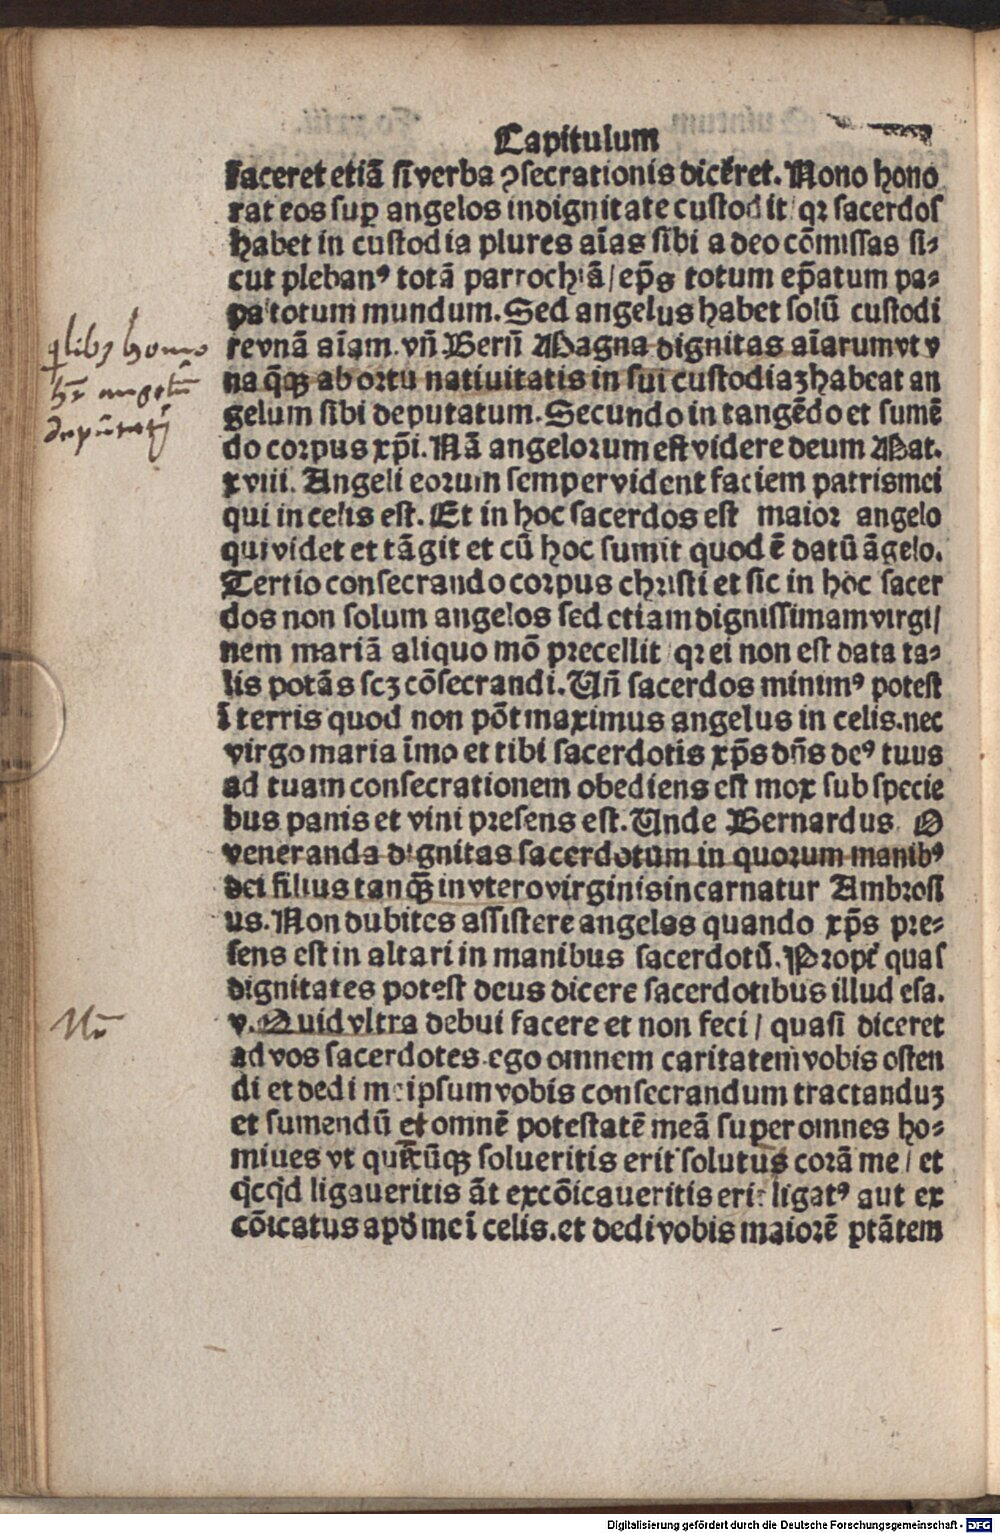 Capitulum
faceret etiā si verba ꝯsecrationis diceret. Nono hono
rat eos suꝑ angelos in dignitate custodit/ qꝛ sacerdos
habet in custodia plures aīas sibi a deo cōmissas si⸗
cut pleban⁹ totā parrochiā/ ep̄s totum ep̄atum pa⸗
pa totum mundum. Sed angelus habet solū custodi
re vnā aīam. vn̄ Bern̄ Magna dignitas aīarum vt v
na q̄qꝫ ab ortu natiuitatis in sui custodiaꝫ habeat an
gelum sibi deputatum. Secundo in tangēdo et sumē
do corpus xp̄i. Nā angelorum est videre deum Mat.
xviii. Angeli eorum semper vident faciem patris mei
qui in celis est. Et in hoc sacerdos est maior angelo
qui videt et tāgit et cū hoc sumit quod ē datū āgelo.
Tertio consecrando corpus christi et sic in hoc sacer
dos non solum angelos sed etiam dignissimam virgi/
nem mariā aliquo mō precellit/ qꝛ ei non est data ta⸗
lis potās scꝫ cōsecrandi. Un̄ sacerdos minim⁹ potest
ī terris quod non pōt maximus angelus in celis. nec
virgo maria īmo et tibi sacerdotis xp̄s dn̄s de⁹ tuus
ad tuam consecrationem obediens est mox sub specie
bus panis et vini presens est. Unde Bernardus O
veneranda dignitas sacerdotum in quorum manib⁹
dei filius tanq̄ꝫ in vtero virginis incarnatur Ambrosi
us. Non dubites assistere angelos quando xp̄s pre⸗
sens est in altari in manibus sacerdotū. Propt̄ quas
dignitates potest deus dicere sacerdotibus illud esa.
v. Quid vltra debui facere et non feci/ quasi diceret
ad vos sacerdotes. ego omnem caritatem vobis osten
di et dedi meipsum vobis consecrandum tractanduꝫ
et sumendū et omnē potestatē meā super omnes ho⸗
mines vt quēcūqꝫ solueritis erit solutus corā me/ et
q̇cq̇d ligaueritis āt excōicaueritis erit ligat⁹ aut ex
cōicatus apd̄ me ī celis. et dedi vobis maiorē ptātem
q̇libꝫ homo
hꝫ angelū
deputatū
Nō
Digitalisierung gefördert durch die Deutsche Forschungsgemeinschaft - DFG